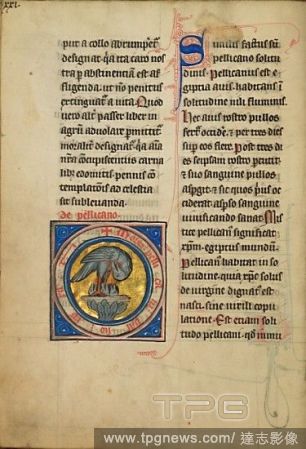 XXI.
pur a collo abrumpet̃
designat̃ q̃a ita caro nos
tra p abstinentiam est af
fligenda. ut nõ penitus
extinguat̃ a uita. Quod
uero alt̃ passer liber in
agrũ aduolare pmittit̃
moralit̃ designat̃ q̃a aĩa
a nr̃a
libe
contemplationis ad celestia
est subleuanda.
de pellicano
Similis factus sum
pellicano solitu
dinis. Pellicanus est e
giptia auis habitans ĩ
solitudine nili fluminis.
Hec auis rostro pullos
suos occidẽ. et per tres dies
sup eos flet. Post tres di
es seipsam rostro peutit.
et suo sanguine pullos
aspgit. et sic quos p̃us oc
ciderat. aspso sanguine
uiuificando sanat. Mis
tice pellicanus significat
xpm̃. egiptus mundũ.
Pellican̾ habitat in so
litudine. quia xpc̃ solus
de uirgine dignat̾ est
nasci. sine uirili copu
latione. Est etiam soli
tudo pellicani. qđ
TPG
www.tpgnews.com / 達志影像